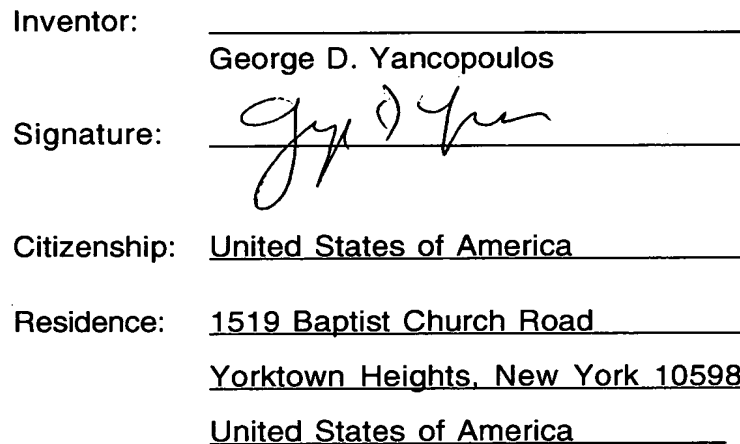 Inventor:
George D. Yancopoulos
Signature:
Citizenship: United States of America
Residence: 1519 Baptist Church Road
Yorktown Heights, New York 10598
United States of America